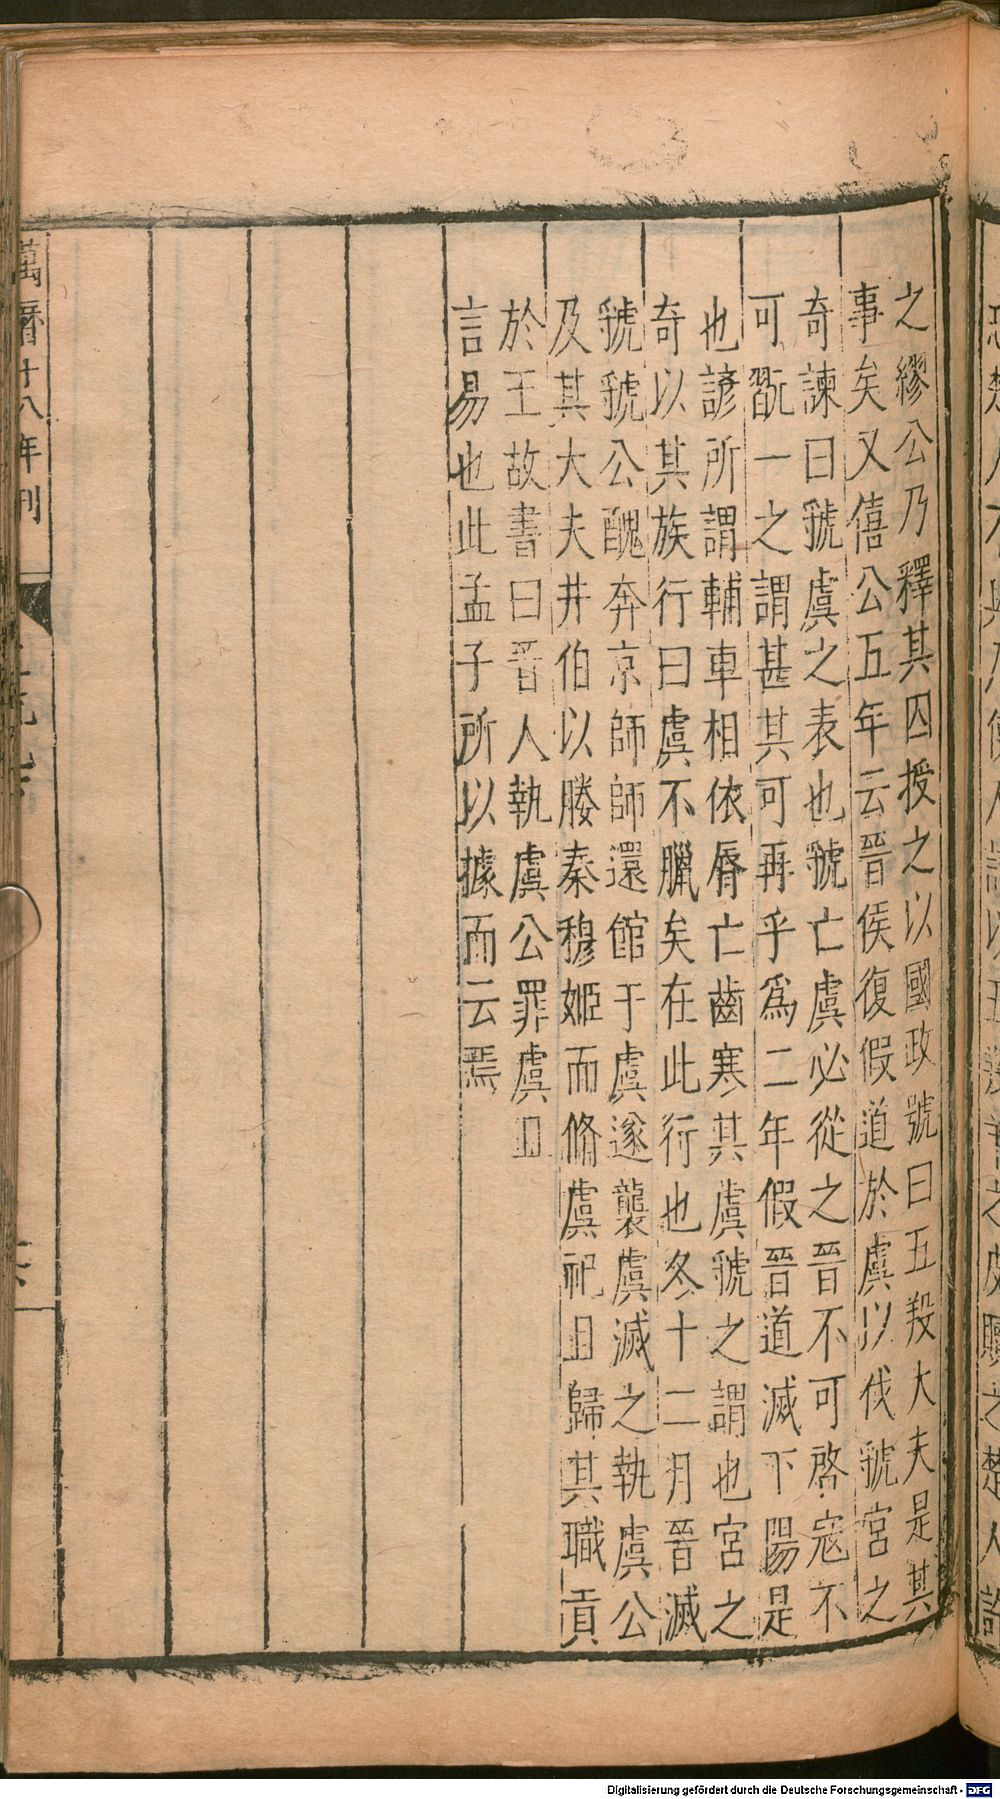 之繆公乃釋其囚授之以國政號曰五羖大夫是其
事矣又僖公五年云晉侯復假道於虞以伐虢宮之
奇諫曰虢虞之表也虢亡虞必從之晉不可啓寇不
可翫一之謂甚其可再乎爲二年假晉道滅下陽是
也諺所謂輔車相依脣亡齒寒其虞虢之謂也宮之
奇以其族行曰虞不臘矣在此行也冬十二月晉滅
虢虢公醜奔京師師還館于虞遂襲虞滅之執虞公
及其大夫井伯以媵秦穆姬而脩虞祀且歸其職貢
於王故書曰晉人執虞公罪虞且
言易也此孟子所以據而云焉
萬曆十八年刊
Digitalisierung gefördert durch die Deutsche Forschungsgemeinschaft - DFG